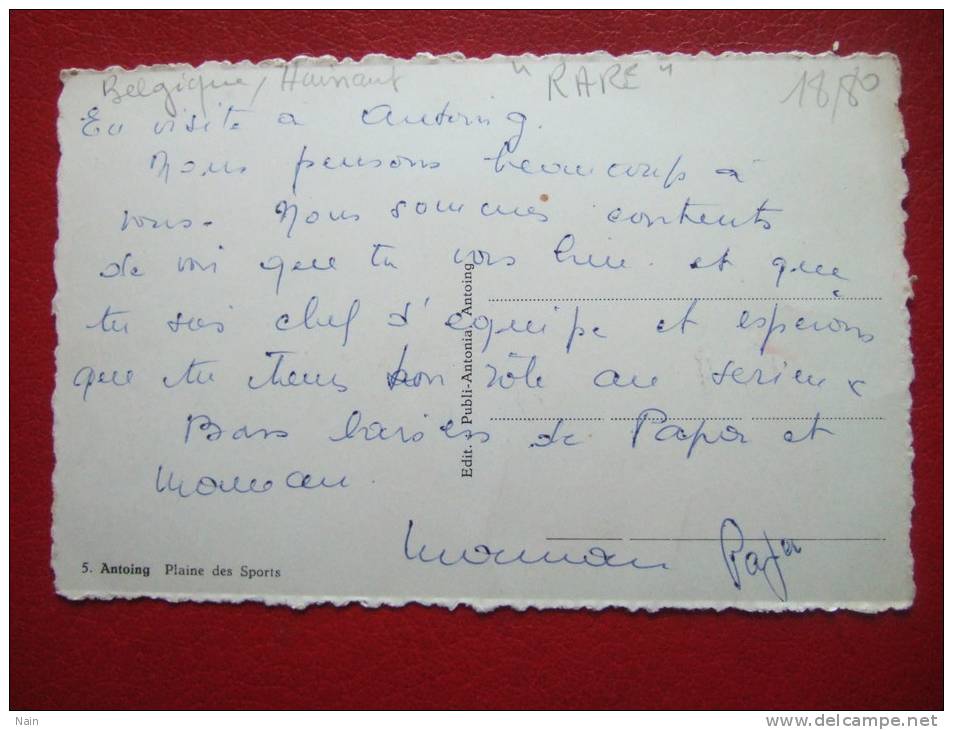 Belgique / Hainaut "RARE" 18/80
En visite à Antoing.
Nous pensons beaucoup à
vous. Nous sommes contents
de voir que tu vas bien et que
tu sois chef d'équipe et espérons
que tu tiens ton rôle au serieux
Bons baisers de Papa et
Maman.
Maman Papa
Edit. : Publi-Antonia, Antoing
5. Antoing Plaine des Sports
Nain
www.delcampe.net